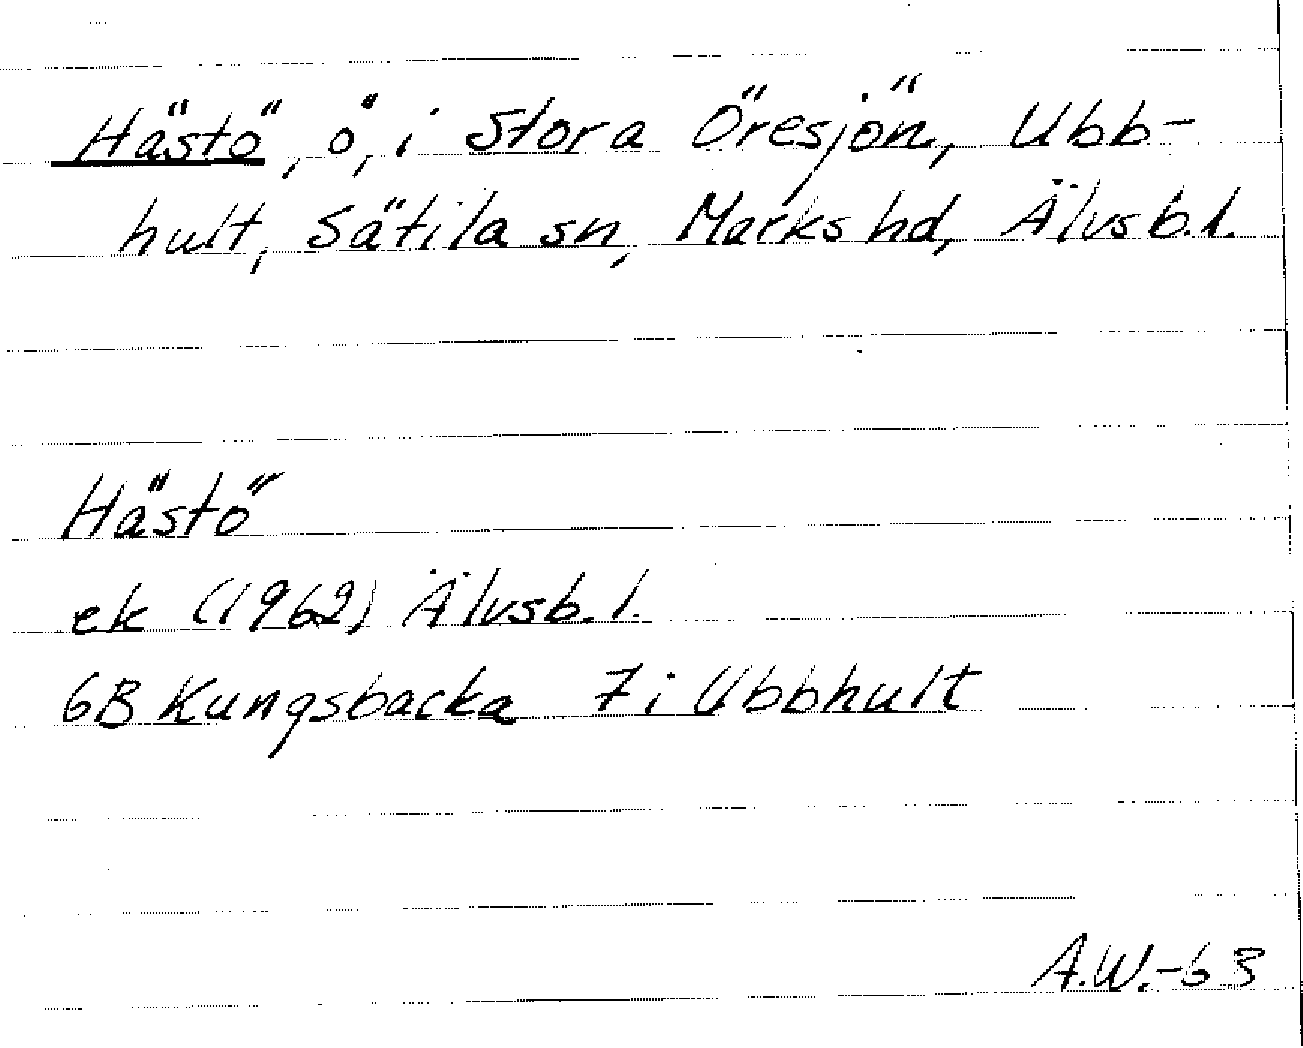 Hästö, ö, i Stora Öresjön, Ubb-
hult, Sätila sn, Marks hd, Älvsb.l.
Hästö
ek (1962) Älvsb.l.
6B Kungsbacka 7i Ubbhult
A.W.-63